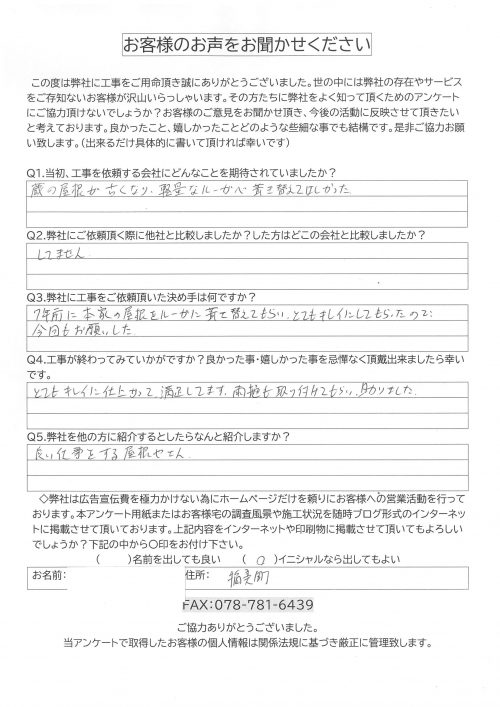 お客様のお声をお聞かせください
この度は弊社に工事をご用命頂き誠にありがとうございました。世の中には弊社の存在やサービス
をご存知ないお客様が沢山いらっしゃいます。その方たちに弊社をよく知って頂くためのアンケート
にご協力頂けないでしょうか？お客様のご意見をお聞かせ頂き、今後の活動に反映させて頂きたい
と考えております。良かったこと、嬉しかったことどのような些細な事でも結構です。是非ご協力お願
い致します。（出来るだけ具体的に書いて頂ければ幸いです）
Q1.当初、工事を依頼する会社にどんなことを期待されていましたか？
蔵の屋根が古くなり、軽量なルーガへ葺き替えてほしかった
Q2.弊社にご依頼頂く際に他社と比較しましたか？した方はどこの会社と比較しましたか？
してません
Q3.弊社に工事をご依頼頂いた決め手は何ですか？
7年前に本家の屋根をルーガに葺き替えてもらい、とてもキレイにしてもらったので
今回もお願いした
Q4.工事が終わってみていかがですか？良かった事・嬉しかった事を忌憚なく頂戴出来ましたら幸い
です。
とてもキレイに仕上がって、満足してます。雨樋も取り付けてもらい、助かりました
Q5.弊社を他の方に紹介するとしたらなんと紹介しますか？
良い仕事をする屋根やさん
◇弊社は広告宣伝費を極力かけない為にホームページだけを頼りにお客様への営業活動を行って
おります。本アンケート用紙またはお客様宅の調査風景や施工状況を随時ブログ形式のインターネッ
トに掲載させて頂いております。上記内容をインターネットや印刷物に掲載させて頂いてもよろしい
でしょうか？下記の中から〇印をお付け下さい。
（ ）名前を出しても良い （ ○ ）イニシャルなら出してもよい
お名前: 住所: 稲美町
FAX:078-781-6439
ご協力ありがとうございました。
当アンケートで取得したお客様の個人情報は関係法規に基づき厳正に管理致します。